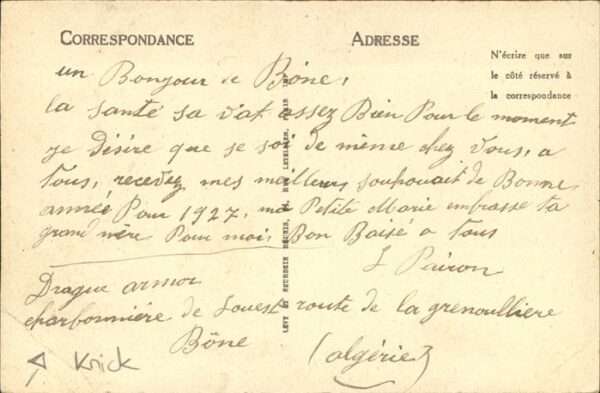 CORRESPONDANCE
ADRESSE
N'écrire que sur
le côté réservé à
la correspondance
un Bonjour de Bône,
la santé sa vat assez Bien Pour le moment
je Désire que se soi de même chez Vous, a
Tous, recevez mes meilleurs souhouait de Bonne
année Pour 1927, ma Petite Marie embrasse ta
grand mère Pour moi, Bon Baisé a Tous
Drague armor
charbonnière de Louest route de la grenoultiere
Bône (algérie)
LEVY ET NEURDEIN REUNIS, 44, RUE LETELLIER, PARIS
Knick